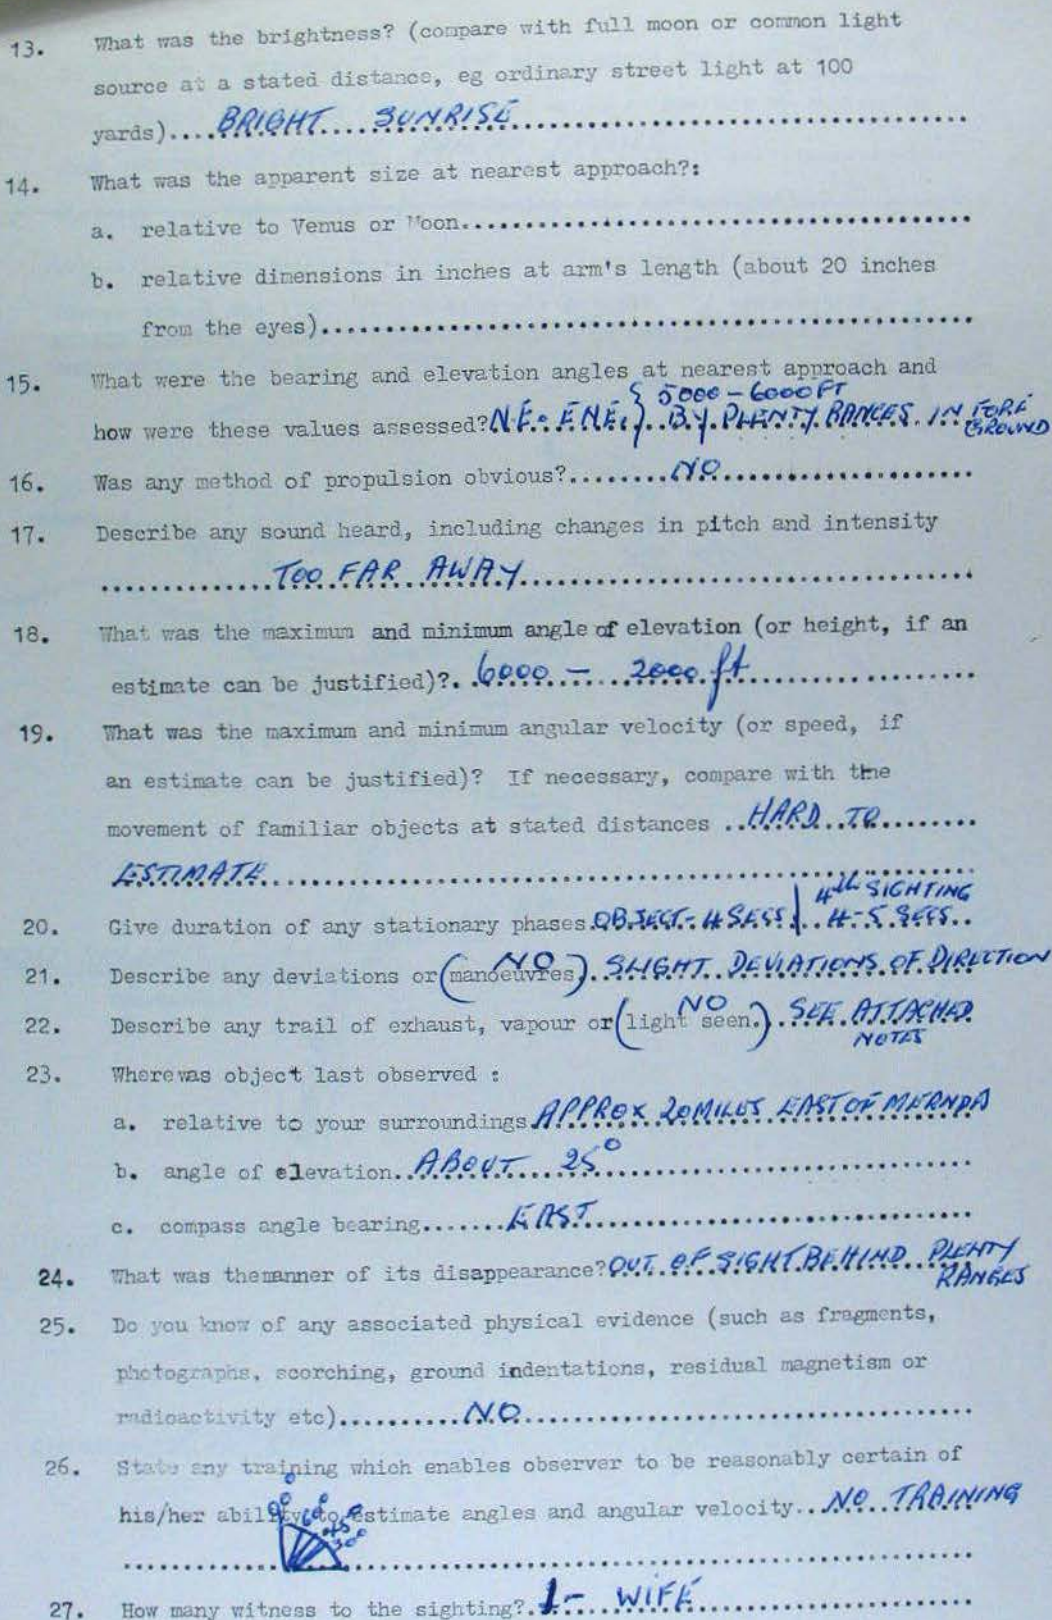 13. What was the brightness? (compare with full moon or common light
source at a stated distance, eg ordinary street light at 100
yards)....BRIGHT....SUNRISE..........
14. What was the apparent size at nearest approach?:
a. relative to Venus or Moon..........
b. relative dimensions in inches at arm's length (about 20 inches
from the eyes)..........
15. What were the bearing and elevation angles at nearest approach and
{ 5000 - 6000 FT
how were these values assessed? N.E. - E.N.E. } BY PLENTY RANGES IN FORE
GROUND
16. Was any method of propulsion obvious?........NO..........
17. Describe any sound heard, including changes in pitch and intensity
..........TOO FAR AWAY..........
18. What was the maximum and minimum angle of elevation (or height, if an
estimate can be justified)?. 6000 - 2000 ft..........
19. What was the maximum and minimum angular velocity (or speed, if
an estimate can be justified)? If necessary, compare with the
movement of familiar objects at stated distances ..HARD TO........
ESTIMATE..........
4th SIGHTING
20. Give duration of any stationary phases. OBJECT - 4 SECS | 4-5 SECS..
NO
21. Describe any deviations or (manoeuvres). SLIGHT DEVIATIONS OF DIRECTION
NO
22. Describe any trail of exhaust, vapour or (light seen.) SEE ATTACHED
NOTES
23. Where was object last observed :
a. relative to your surroundings APPROX 20 MILES EAST OF MERNDA
b. angle of elevation..ABOUT 25°..........
c. compass angle bearing.......EAST..........
24. What was themanner of its disappearance? OUT OF SIGHT BEHIND PLENTY
RANGES
25. Do you know of any associated physical evidence (such as fragments,
photographs, scorching, ground indentations, residual magnetism or
radioactivity etc)..........NO..........
26. State any training which enables observer to be reasonably certain of
his/her ability to estimate angles and angular velocity...NO TRAINING
90° 60° 45° 30°
27. How many witness to the sighting?. 1 - WIFE..........